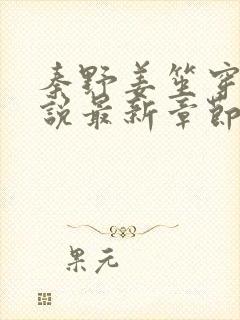 秦野姜笙穿
說最新章節
果元